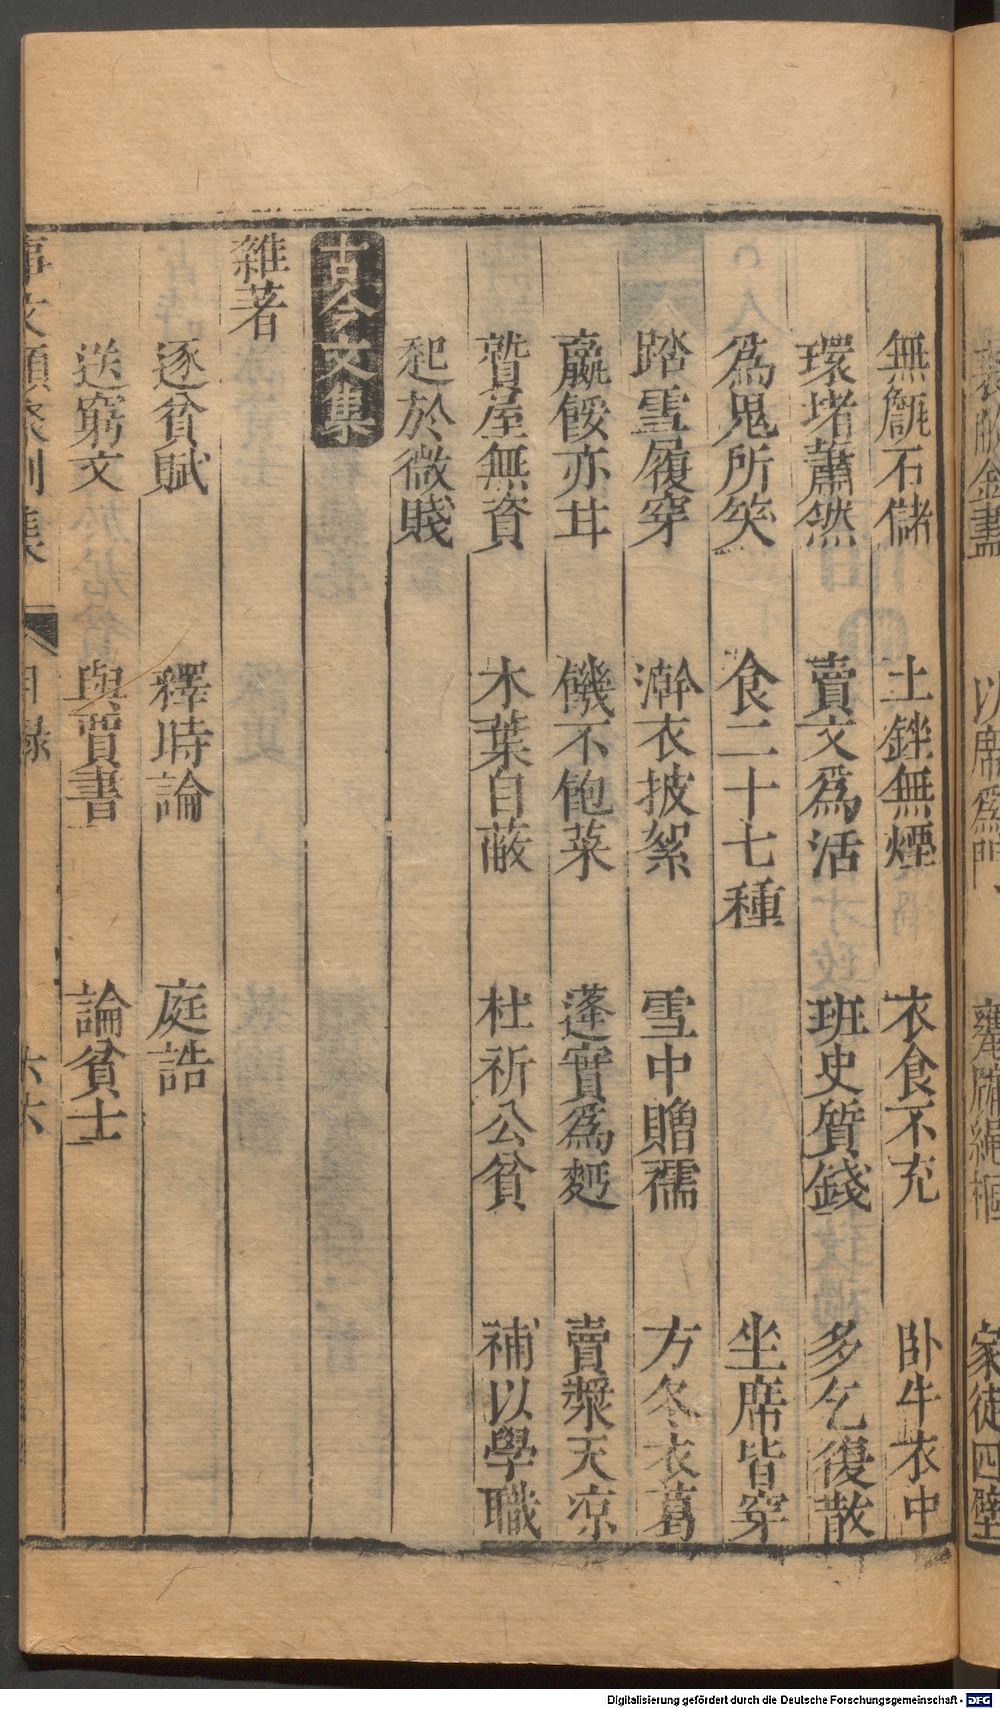 無甔石儲　土銼無煙　衣食不充　卧牛衣中
環堵蕭然　賣文爲活　班史質錢　多乞復散
爲鬼所笑　食二十七種　坐席皆穿
踏雪履穿　澣衣披絮　雪中贈襦　方冬衣葛
羸餒亦甘　饑不飽菜　蓬實爲麪　賣漿天凉
貰屋無資　木葉自蔽　杜祈公貧　補以學職
起於微賤
古今文集
雜著
逐貧賦　釋時論　庭誥
送窮文　與賈書　論貧士
事文類聚別集　目錄　六六
以席爲門
家徒四壁
Digitalisierung gefördert durch die Deutsche Forschungsgemeinschaft - DFG